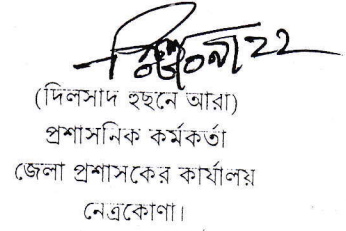 (দিলসাদ হুছনে আরা)
প্রশাসনিক কর্মকর্তা
জেলা প্রশাসকের কার্যালয়
নেত্রকোণা।